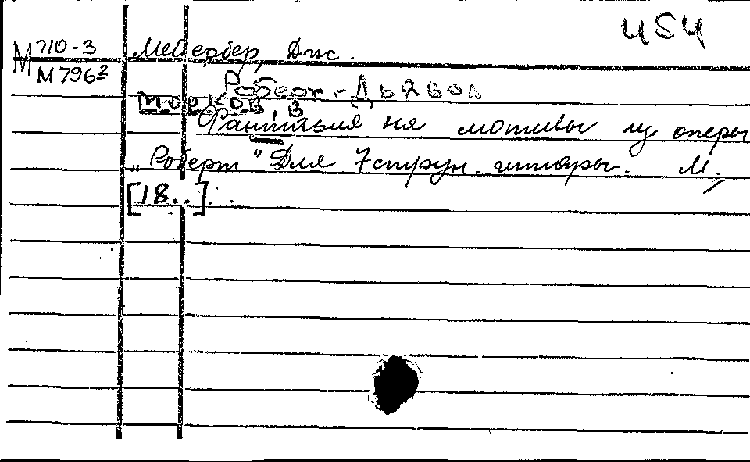 454
М 710-3 Мейербер, Дж.
М 796²
Роберт-Дьявол
Морков, В.
Фантазия на мотивы из оперы
„Роберт" Для 7 струн. гитары. М.,
[18..].